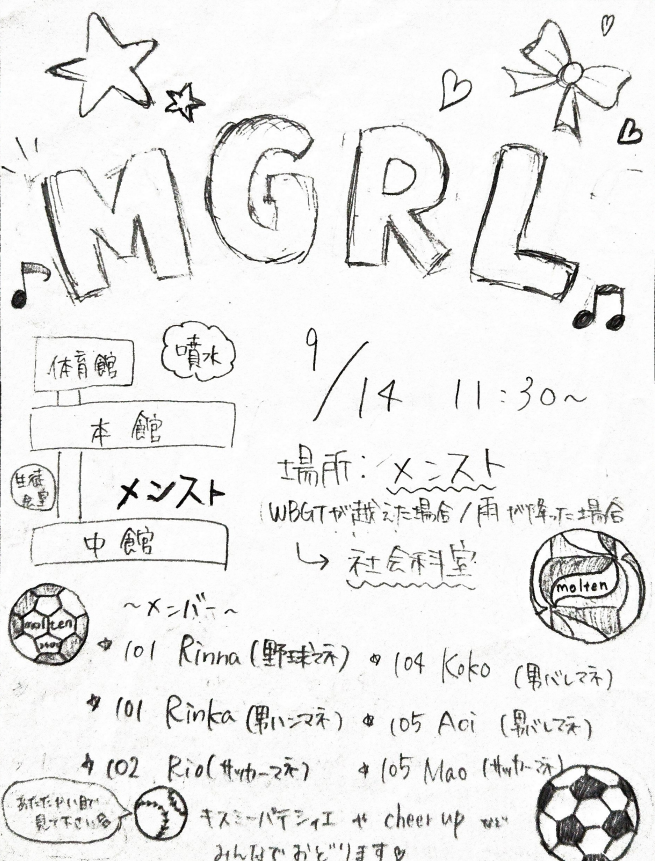 MGRL
体育館
噴水
本館
生徒
会室
メンスト
中館
9/14 11:30~
場所: メンスト
WBGTが越えた場合/雨が降った場合
↳ 社会科室
molten
molten
~メンバー~
101 Rinna (野球マネ)
104 Koko (男バレマネ)
101 Rinka (男ハンマネ)
105 Aoi (男バレマネ)
102 Rio (サッカーマネ)
105 Mao (サッカーマネ)
あたたかい目で
見て下さい
キスミーパティシエ や cheer up など
みんなでおどります♡